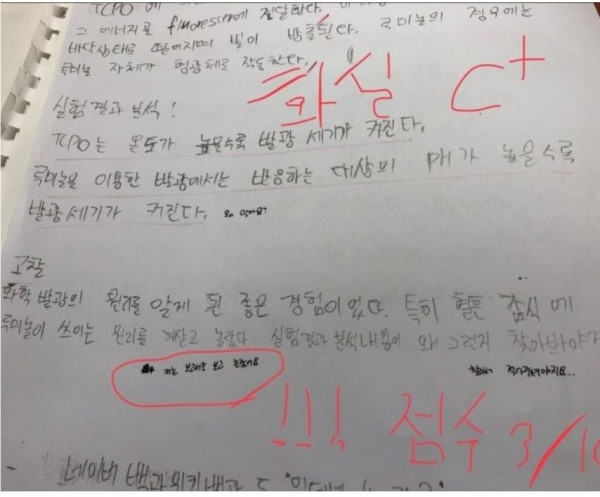 TCPO에
그 에너지로 fluorescer에 전달한다.
바닥상태로 떨어지며 빛이 방출된다. 루미놀의 경우에는
루미놀 자체가 형광체로 작용한다.
확실 C+
실험결과 분석!
TCPO는 온도가 높을수록 발광 세기가 커진다.
루미놀을 이용한 발광에서는 반응하는 대상의 pH가 높을수록
발광세기가 커진다.
고찰
화학 발광의 원리를 알게 된 좋은 경험이었다. 특히 혈흔 감식에
루미놀이 쓰이는 원리를 깨닫고 놀랐다. 실험결과 분석내용이 왜 그런지 찾아봐야
저는 보고서를 보고 놀랐어요
!!! 점수 3/10
- 네이버 백과 위키백과